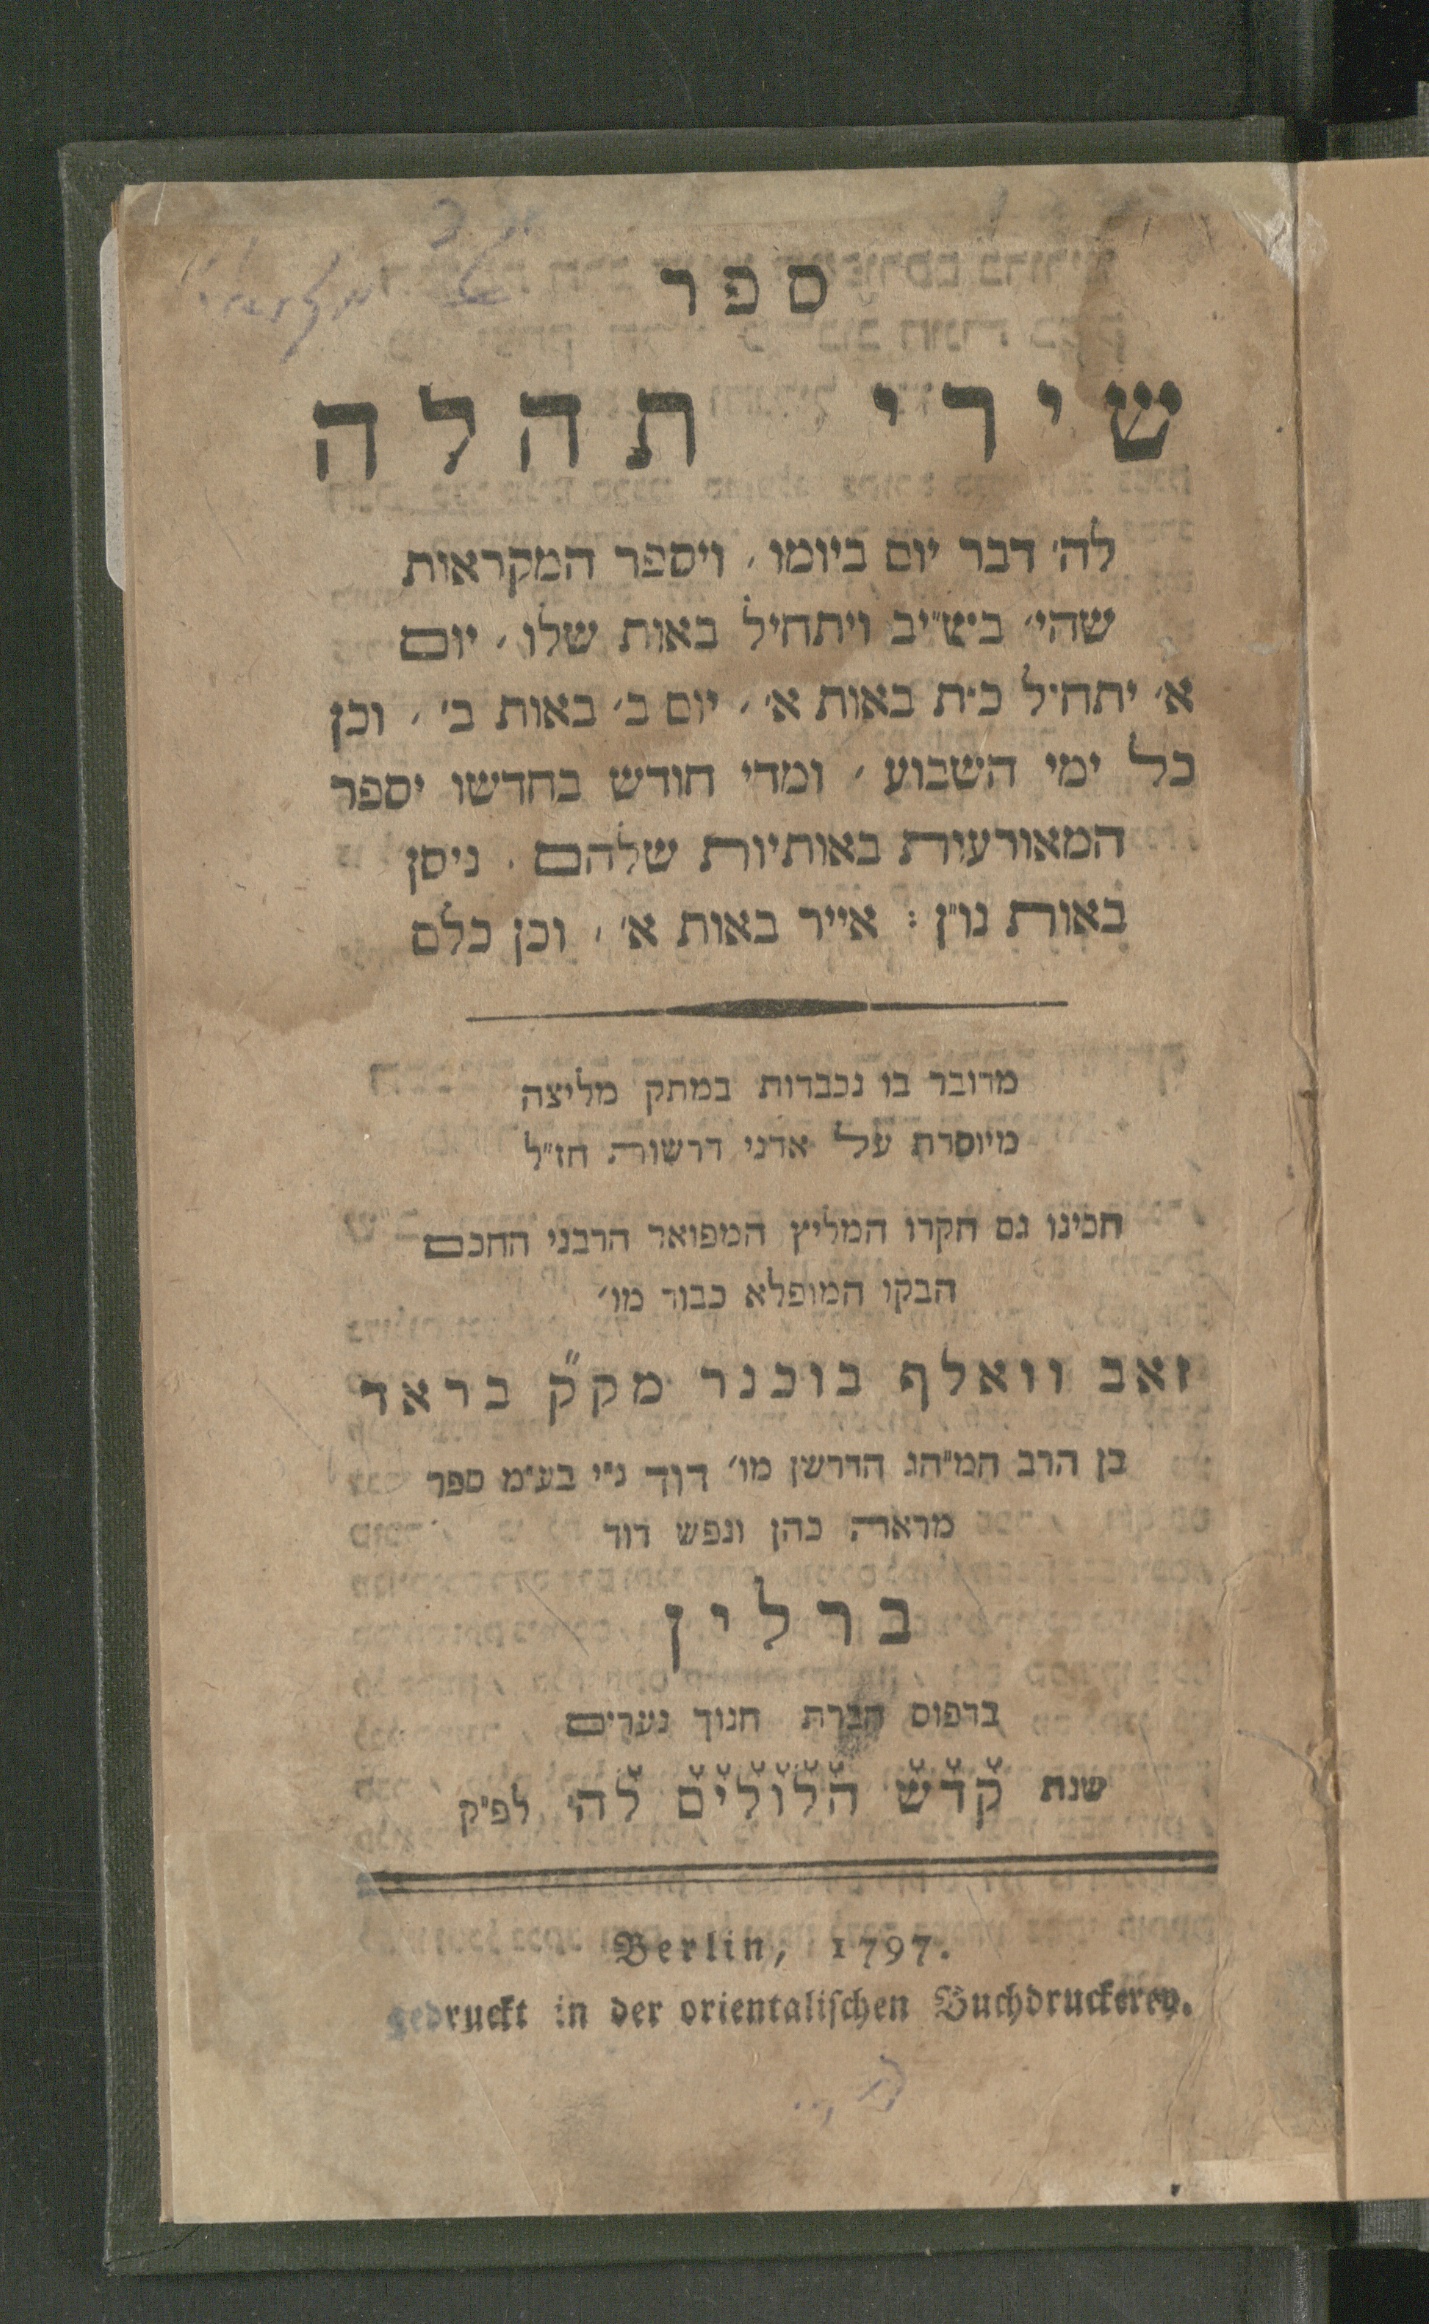 ספר
שירי תהלה
לה׳ דבר יום ביומו, ויספר המקראות
שהי׳ ביש״יב ויתחיל באות שלו, יום
א׳ יתחיל כ״ת באות א׳, יום ב׳ באות ב׳, וכן
כל ימי השבוע, ומדי חודש בחדשו יספר
המאורעות באותיות שלהם. ניסן
באות נו״ן: אייר באות א׳, וכן כלם
מדובר בו נכבדות במתק מליצה
מיוסדת על אדני דרשות חז״ל
הכינו גם חקרו המליץ המפואר הרבני החכם
הבקו המופלא כבוד מו׳
זאב וואלף בוכנר מק״ק בראד
בן הרב המ״הג הדרשן מו׳ דוד נ״י בע״מ ספר
מראה כהן ונפש דוד
ברלין
בדפוס חברת חנוך נערים
שנת קדש הלולים לה׳ לפ״ק
Berlin, 1797.
gedruckt in der orientalischen Buchdruckerey.